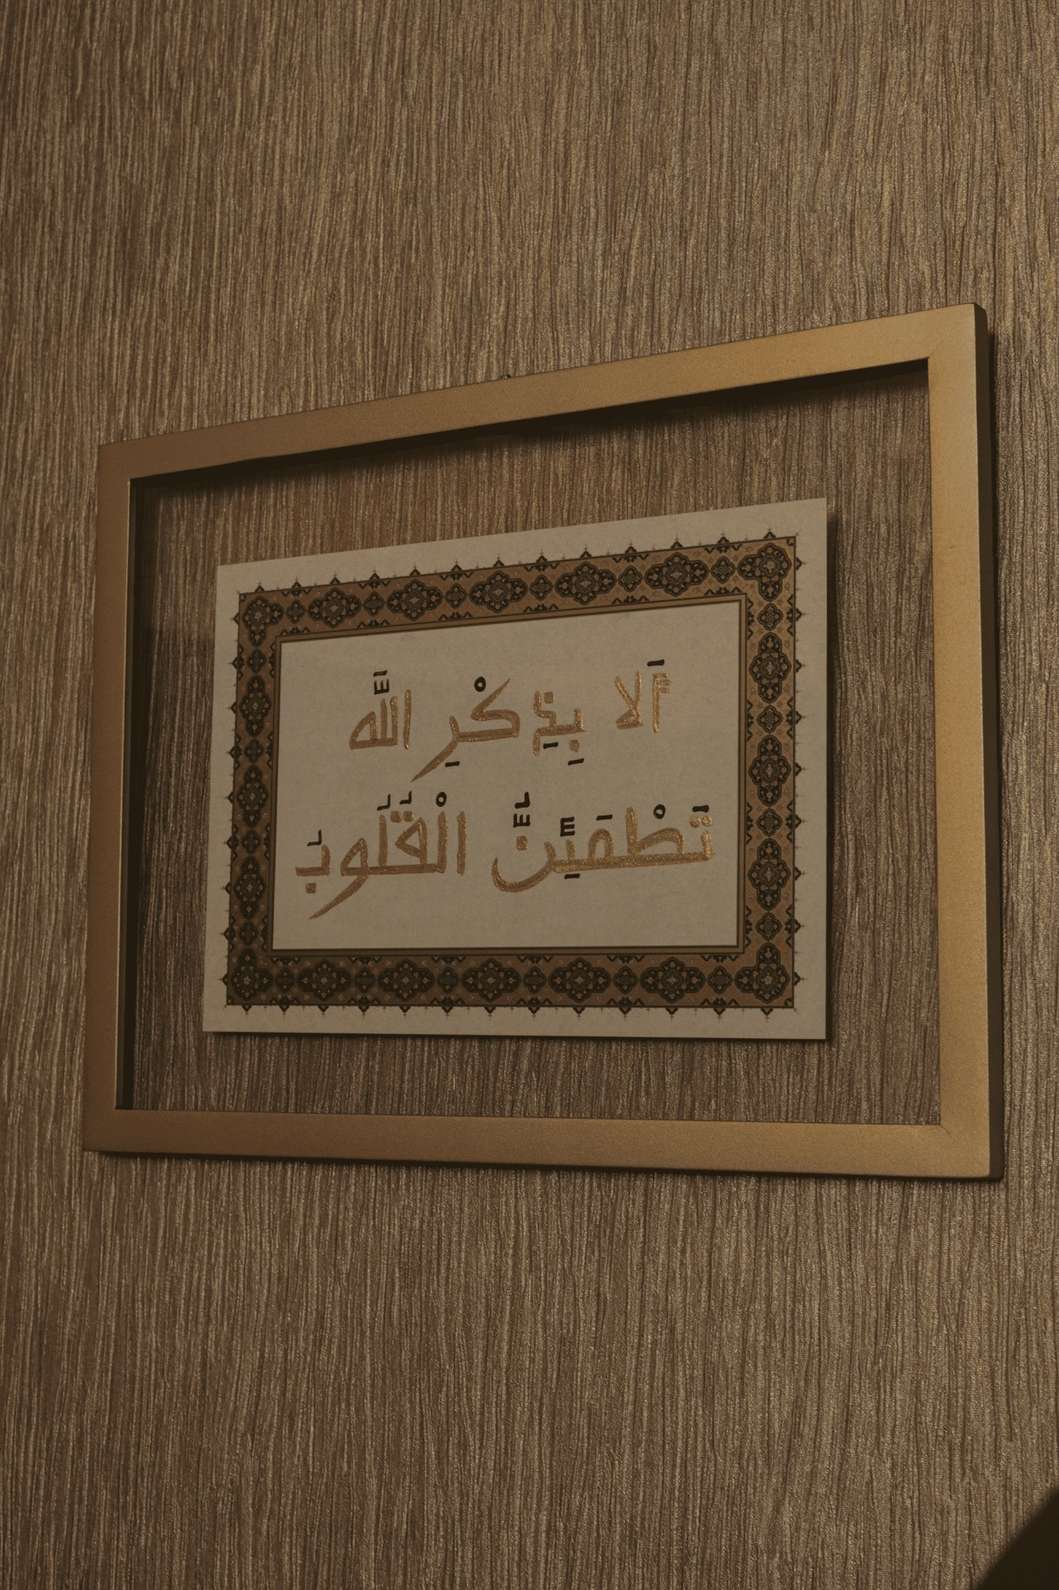 أَلَا بِذِكْرِ اللَّهِ
تَطْمَئِنُّ الْقُلُوبُ